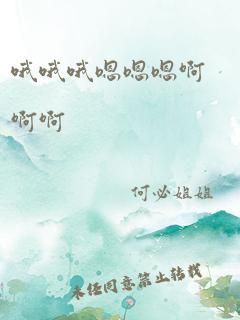 哦哦哦嗯嗯嗯啊
啊啊
何必姐姐
未经同意禁止转载